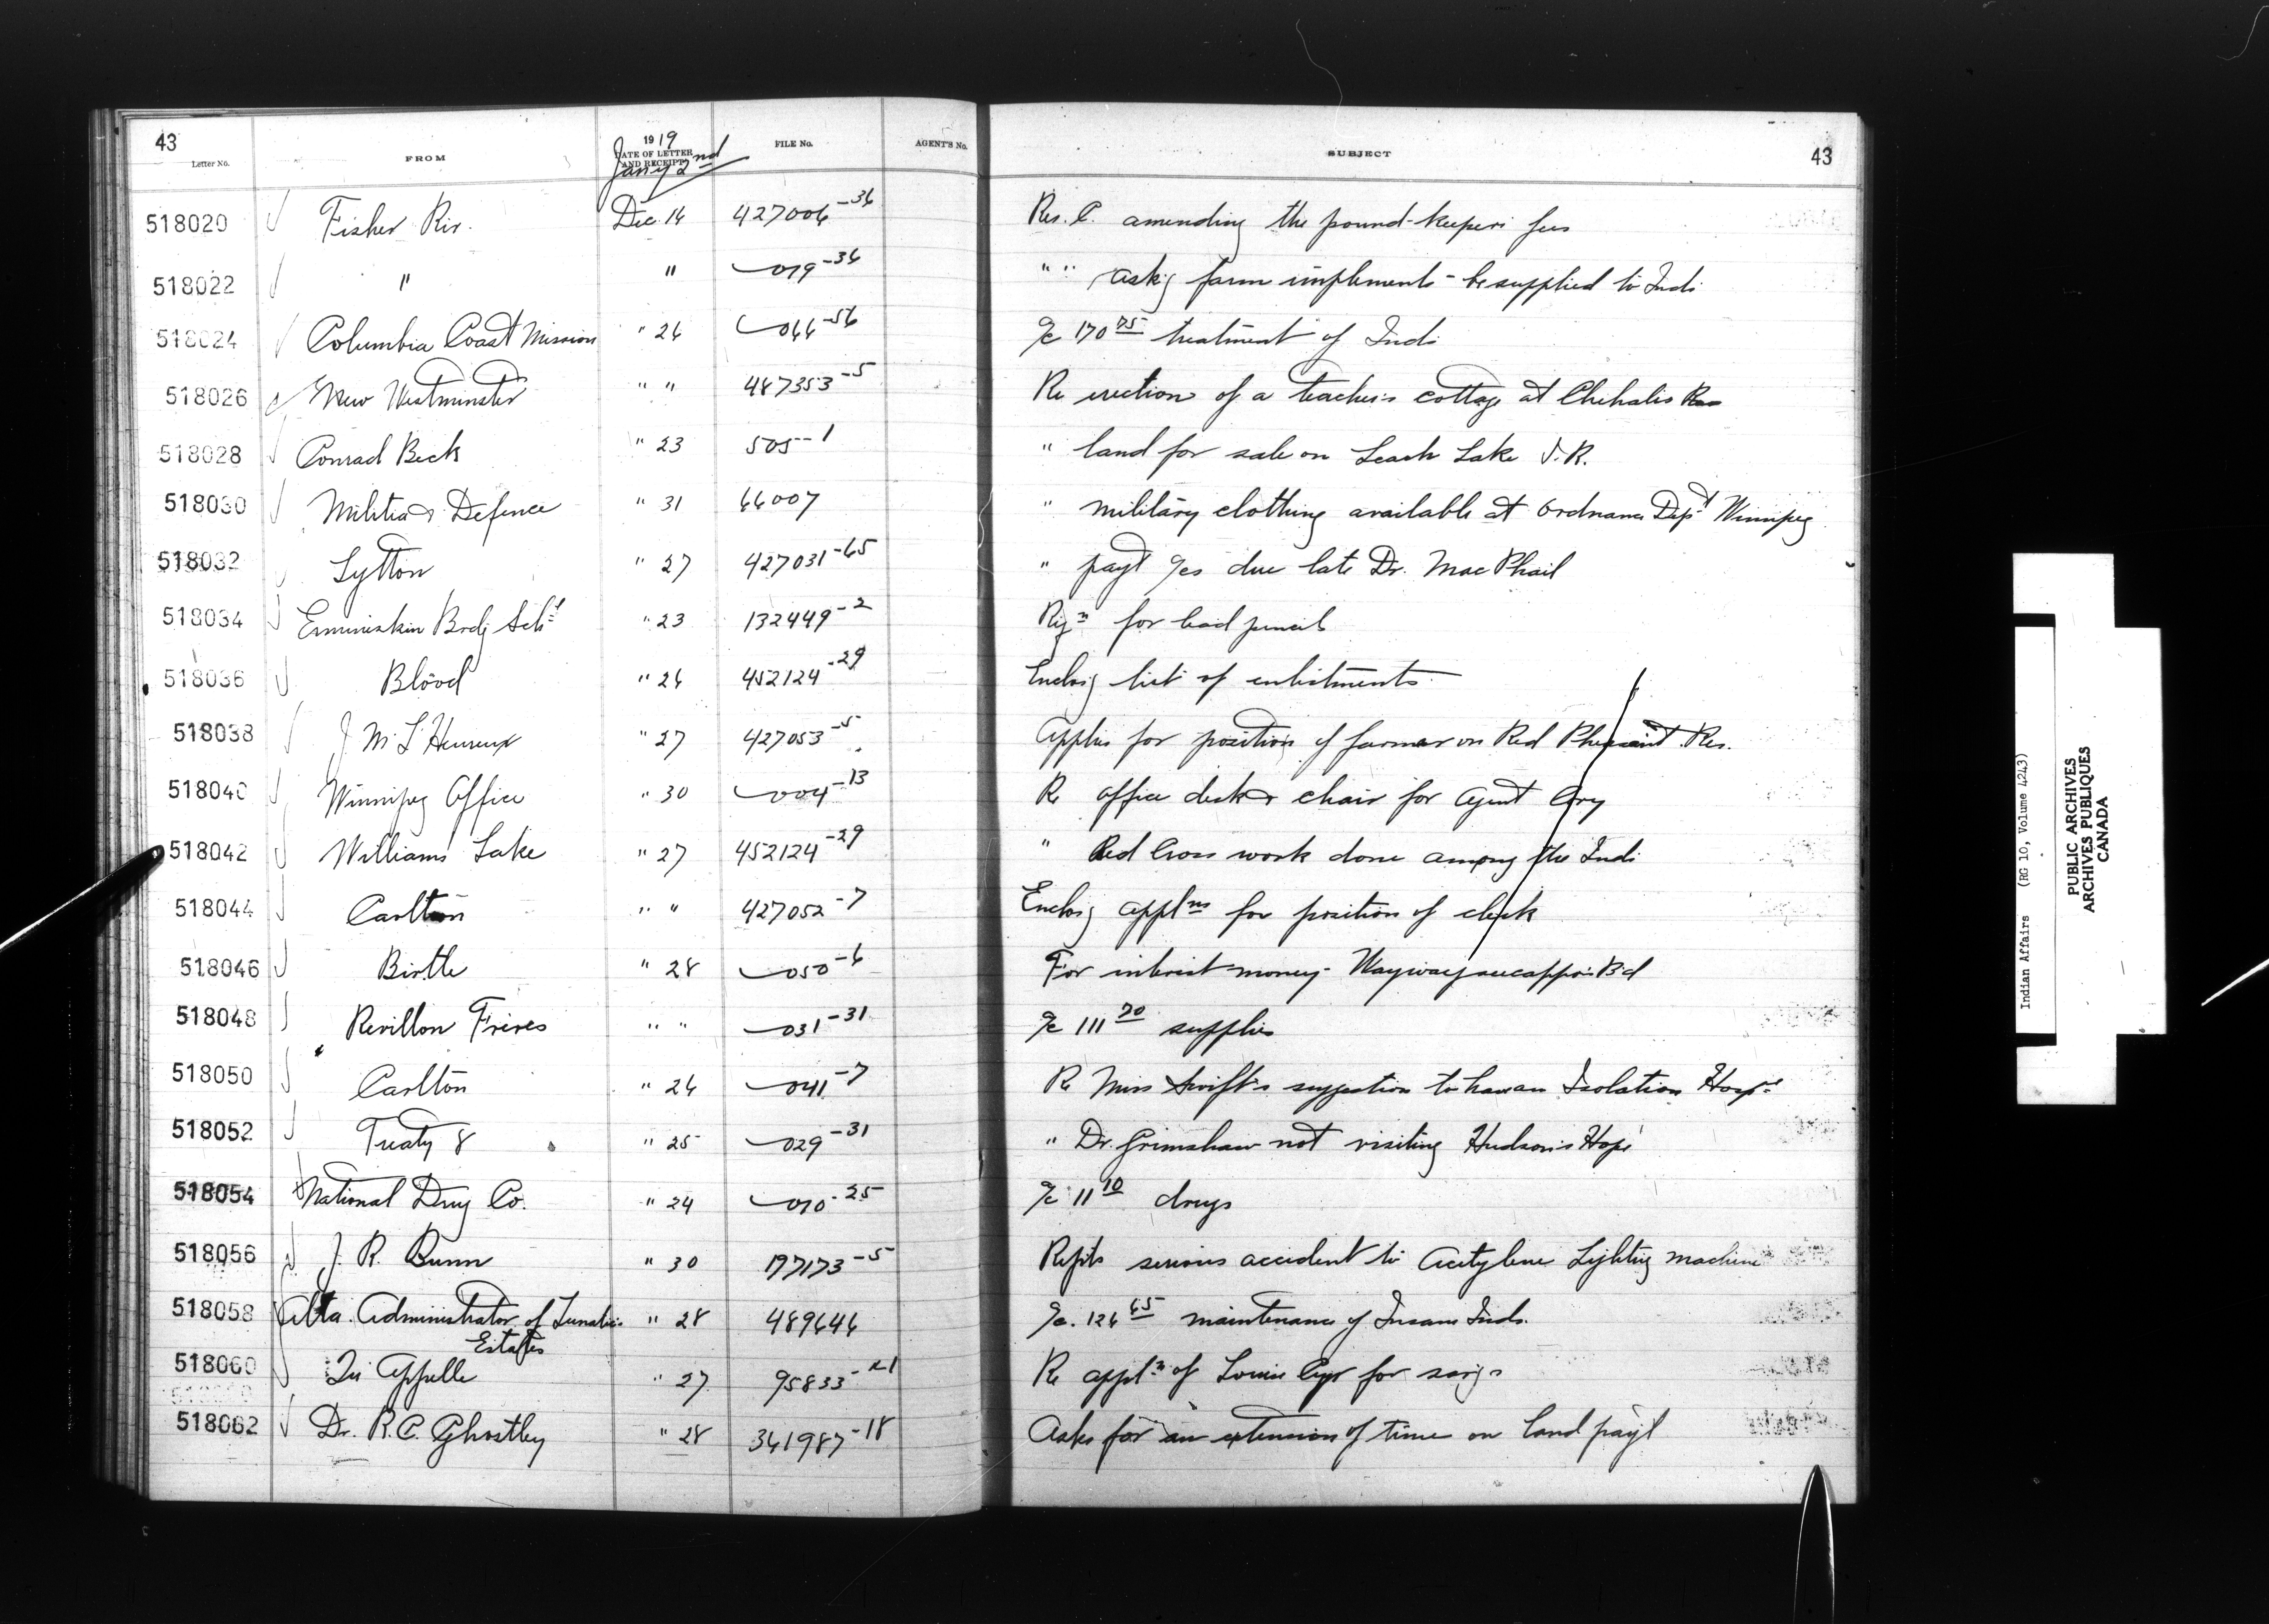 43
Letter No. FROM 1919 DATE OF LETTER AND RECEIPT FILE No. AGENT'S No. SUBJECT 43
Jany 2nd
518020 Fisher Riv. Dec 14 427006-36 Res. C. amending the pound-keeper's fees
518022 " " 019-36 " " askg farm implements be supplied to Inds
518024 Columbia Coast Mission " 26 044-56 a/c 170 75 treatment of Inds
518026 New Westminster " " 487353-5 Re erection of a teacher's cottage at Chehalis Res
518028 Conrad Beck " 23 505-1 " land for sale on Leach Lake I.R.
518030 Militia & Defence " 31 66007 " military clothing available at Ordnance Dept Winnipeg
518032 Lytton " 27 427031-65 " payt a/cs due late Dr. MacPhail
518034 Ermineskin Brdg Schl " 23 132449-2 Rqn for lead pencils
518036 Blood " 26 452124-29 Enclosg list of enlistments
518038 J. M. L'Heureux " 27 427053-5 Applies for position of farmer on Red Pheasant Res.
518040 Winnipeg Office " 30 004-13 Re office desk & chair for Agent
518042 Williams Lake " 27 452124-29 " Red Cross work done among the Inds
518044 Carlton " " 427052-7 Enclosg applns for position of clerk
518046 Birtle " 28 050-6 For interest money Waywayseecappo's Bd
518048 Revillon Frères " " 031-31 a/c 111 70 supplies
518050 Carlton " 26 041-7 Re Miss Swift's suggestion to have an Isolation Hospl
518052 Treaty 8 " 25 029-31 " Dr. Grimshaw not visiting Hudson's Hope
518054 National Drug Co. " 24 010-25 a/c 11 10 drugs
518056 J. R. Bunn " 30 197173-5 Repts serious accident to Acetylene Lighting machine
518058 Alta. Administrator of Lunatics " 28 489646 a/c. 126 65 maintenance of Insane Inds.
Estates
518060 Qu'Appelle " 27 95833-21 Re appln of Louis Cyr for
518062 Dr. R. C. Ghostley " 28 341987-18 Asks for an extension of time on land payt
Indian Affairs (RG 10, Volume 4243)
PUBLIC ARCHIVES
ARCHIVES PUBLIQUES
CANADA